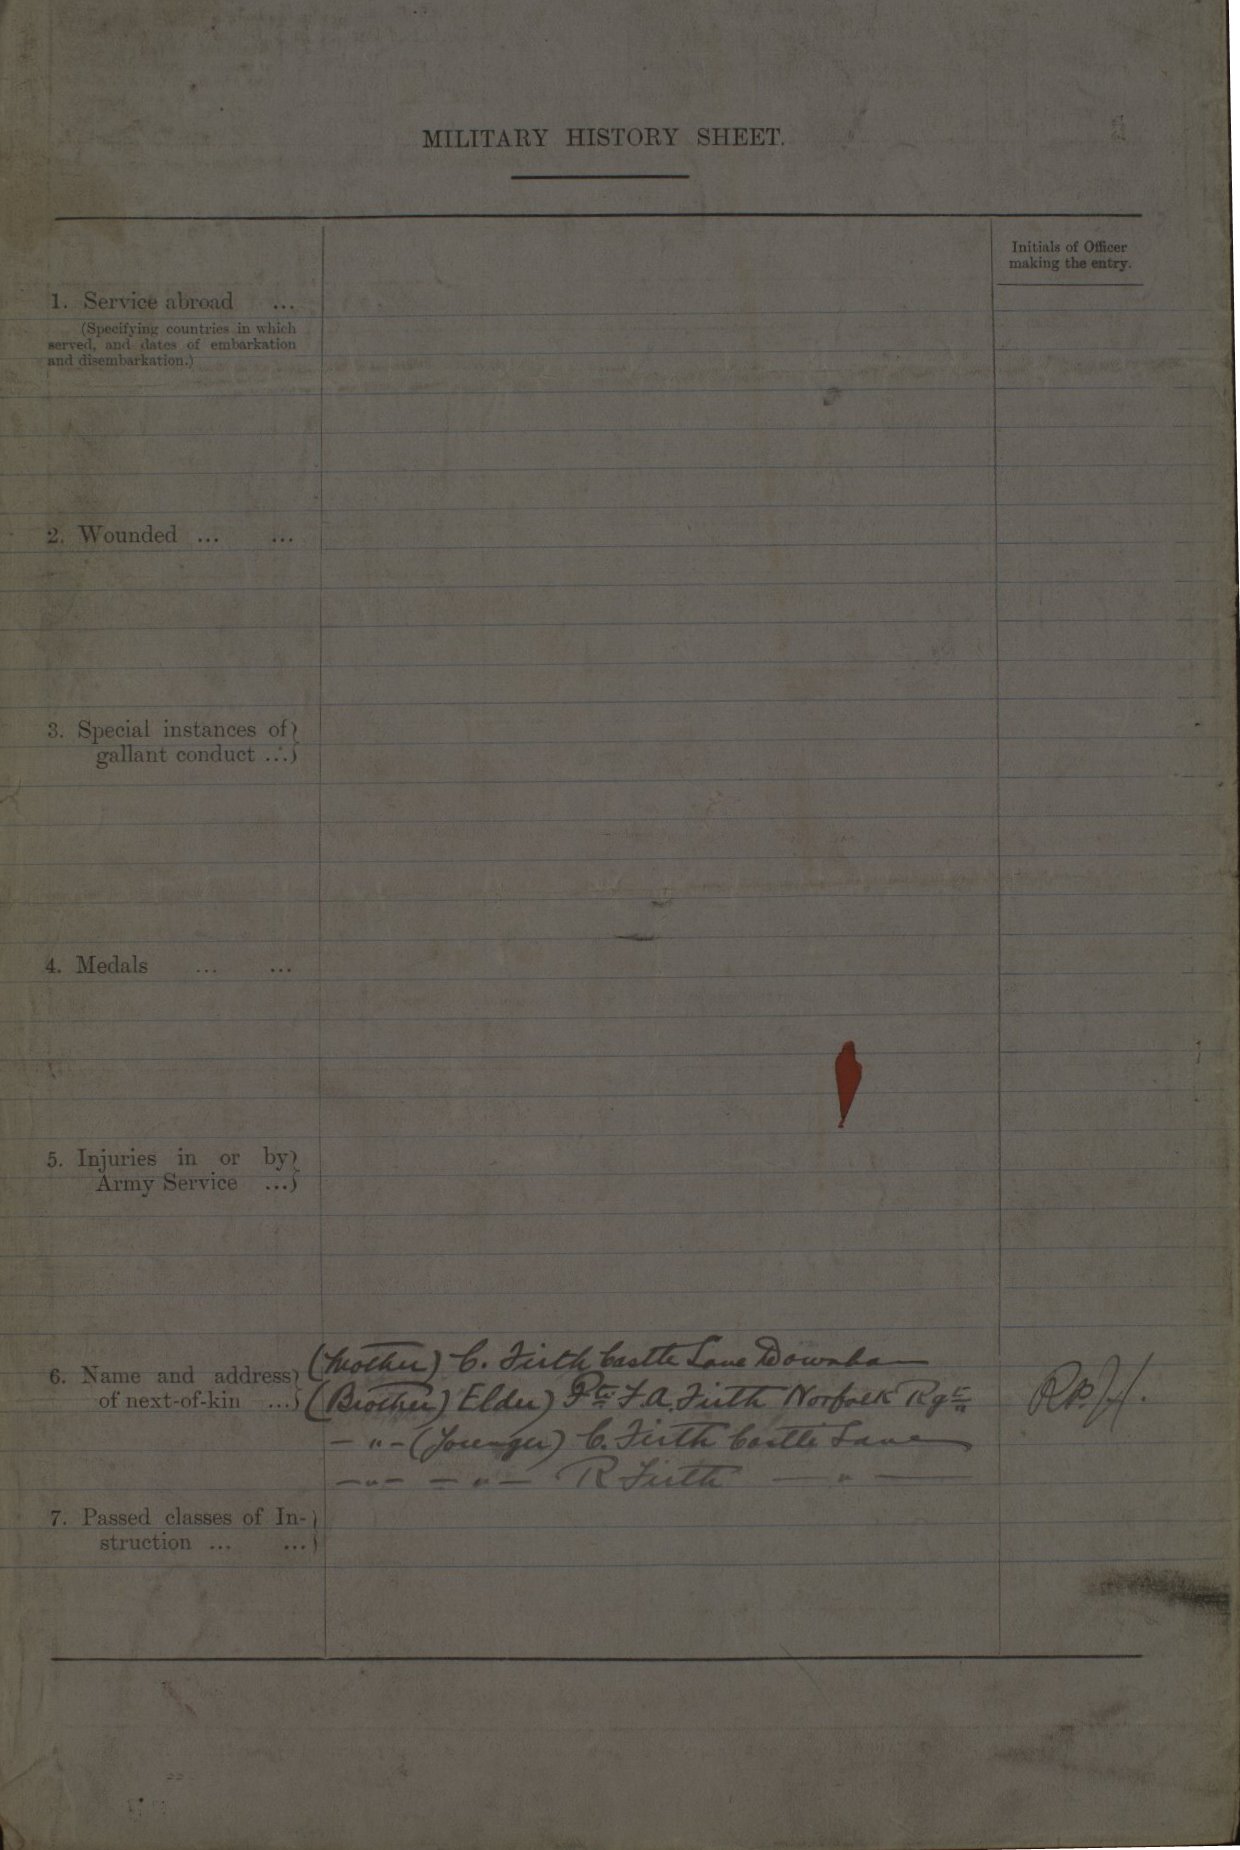 MILITARY HISTORY SHEET.
Initials of Officer
making the entry.
1. Service abroad ...
(Specifying countries in which
served, and dates of embarkation
and disembarkation.)
2. Wounded ... ...
3. Special instances of
gallant conduct ...
4. Medals ... ...
5. Injuries in or by
Army Service ...
6. Name and address
of next-of-kin ...
(Mother) C. Firth Castle Lane Downham
(Brother) Elder) Pte F. A. Firth Norfolk Rgt
— " — (Younger) C. Firth Castle Lane
— " — — " — R Firth — " —
7. Passed classes of In-
struction ... ...